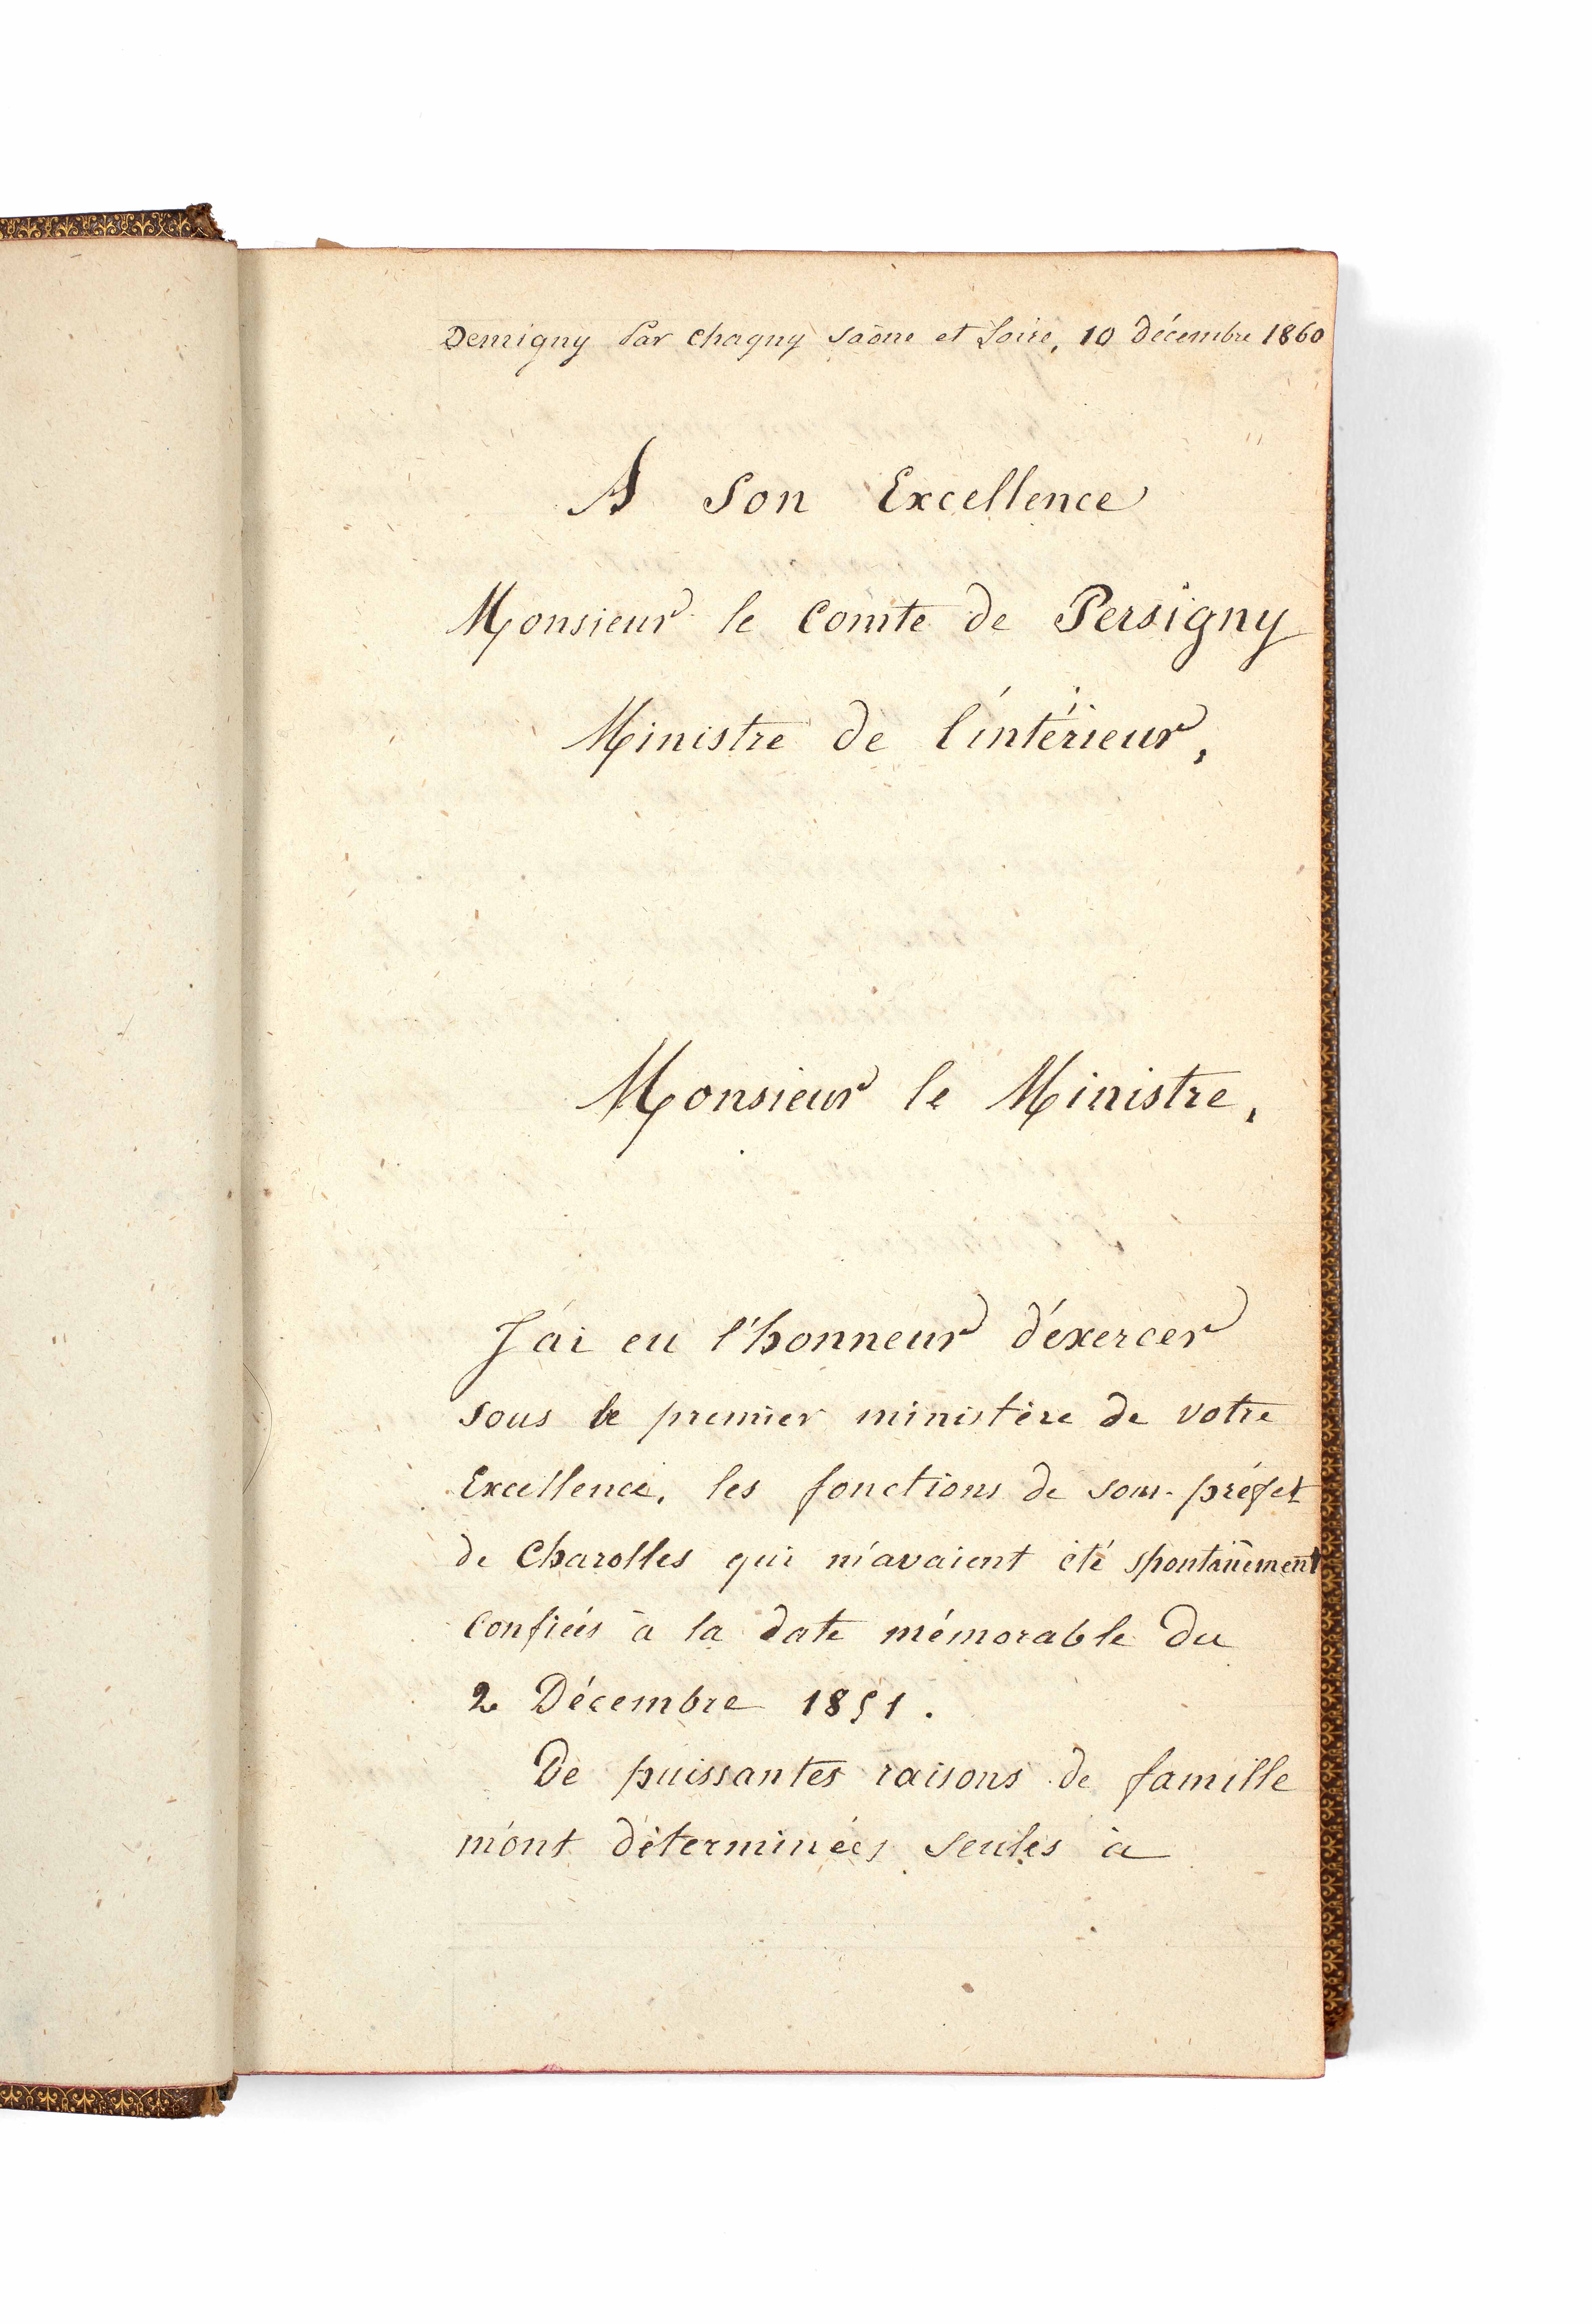 Demigny Par Chagny Saône et Loire, 10 décembre 1860
A Son Excellence
Monsieur le Comte de Persigny
Ministre de l'intérieur,
Monsieur le Ministre,
J'ai eu l'honneur d'éxercer
sous le premier ministère de votre
Excellence, les fonctions de sous-préfet
de Charolles qui m'avaient été spontanément
confiées à la date mémorable du
2 Décembre 1851.
De puissantes raisons de famille
m'ont déterminées seules à